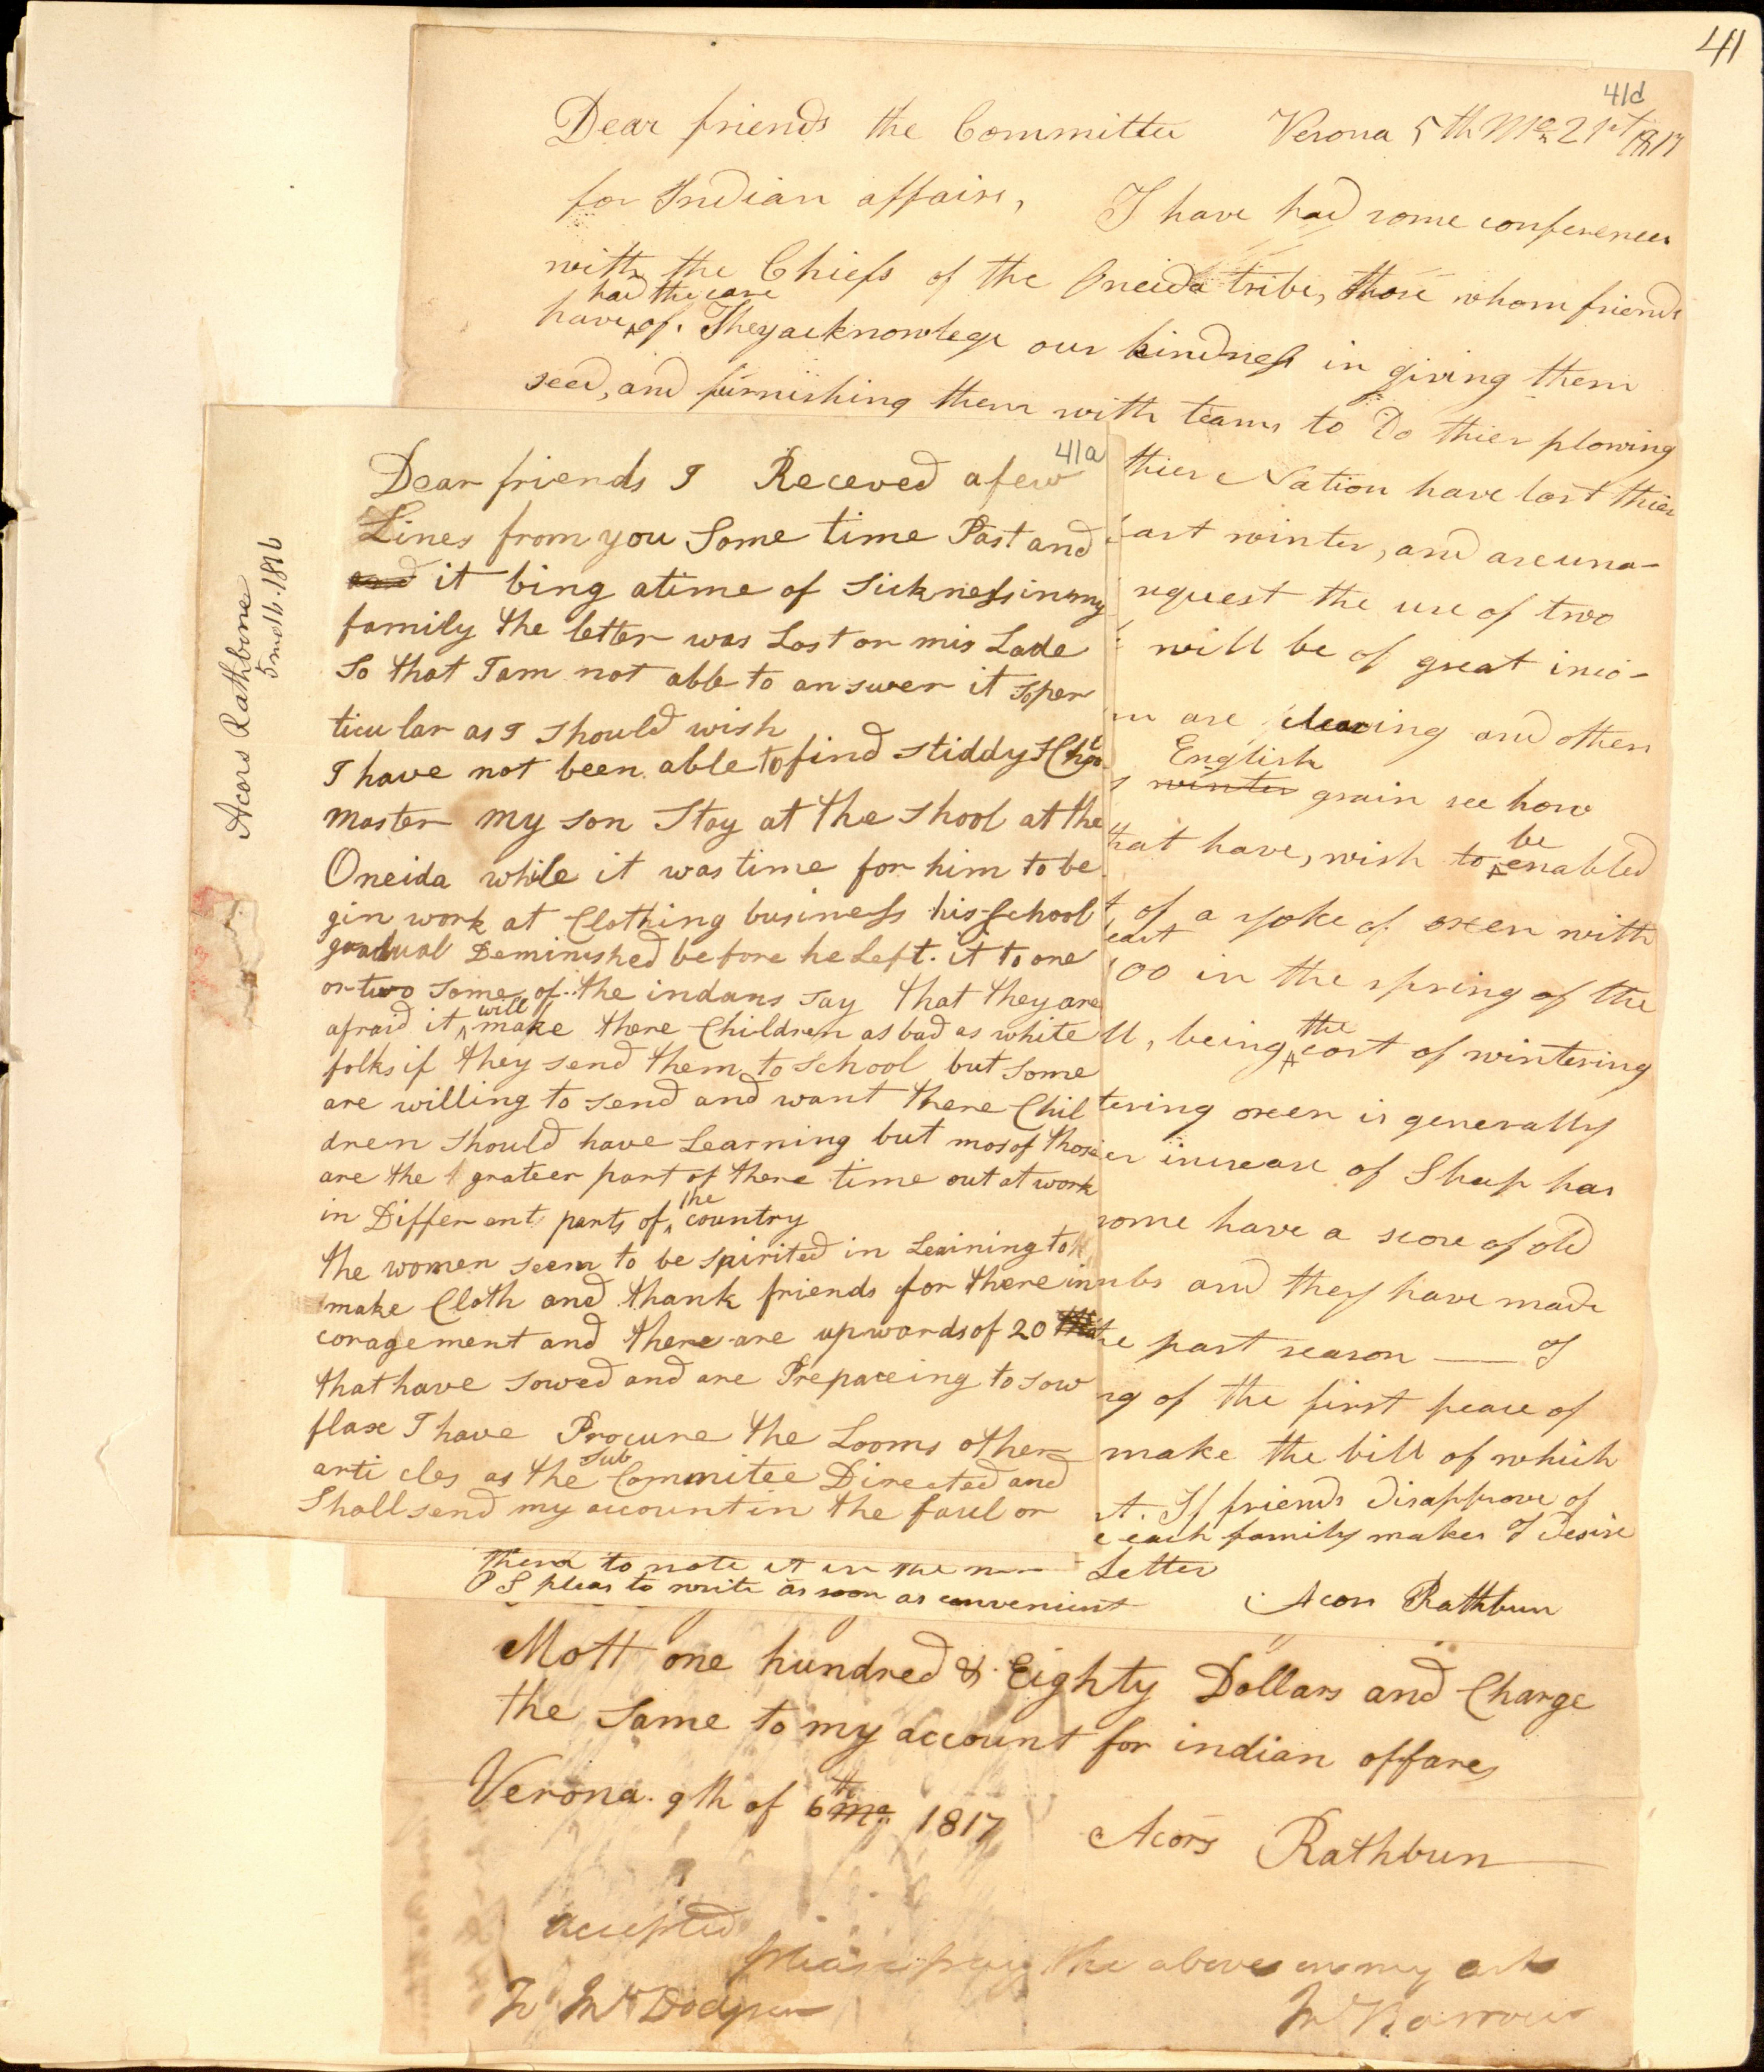 41
41d
Dear friends the Committee Verona 5th Mo 21st 1817
for Indian affairs, I have had some conferences
with the Chiefs of the Oneida tribe, those whom friends
had the care
have of. They acknowlege our kindness in giving them
seed, and furnishing them with teams to Do thier plowing
thier Nation have lost thier
ast winter, and are una-
request the use of two
will be of great inco-
are clearing and others
English
winter grain see how
be
hat have, wish to enabled
of a yoke of oxen with
east
00 in the spring of the
the
ll, being cost of wintering
tering oxen is generally
er increase of Sheep has
some have a score of old
mbs and they have made
he past season — I
ng of the first peace of
make the bill of which
t. If friends disapprove of
e each family makes I desire
them to note it in the Letter
P S pleas to write as soon as convenient Acors Rathbun
Acors Rathbone
5 mo 16. 1816
41a
Dear friends I Receved a few
Lines from you Some time Past and
and it bing a time of Sickness in my
family the letter was Lost or mis Lade
So that I am not able to answer it so per
ticular as I should wish
I have not been able to find stiddy
master my son Stay at the Shool at the
Oneida while it was time for him to be
gin work at Clothing business his School
gradual Deminished before he Left. it to one
or two some of the indans say that they are
will
afraid it make there Children as bad as white
folks if they send them to School but some
are willing to send and want there Chil
dren should have Learning but mos of those
are the grateer part of there time out at work
the
in Different parts of country
the women seem to be spirited in Leaining to
make Cloth and thank friends for there in
coragement and there are upwards of 20
that have sowed and are Prepareing to sow
flax I have Procure the Looms other
Sub
arti cles as the Commitee Directed and
Shall send my account in the faul or
Mott one hundred & Eighty Dollars and Charge
the Same to my account for indian affares
Verona. 9th of 6th mo. 1817
Acors Rathbun
accepted
please pay the above on my